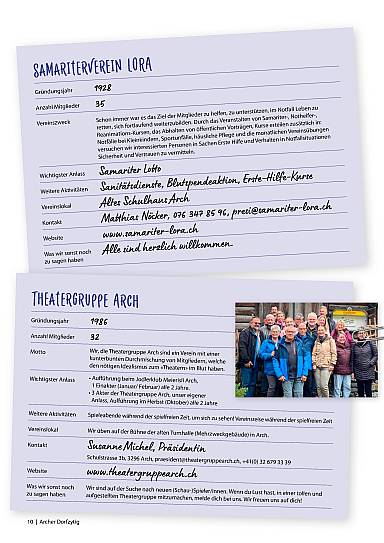 SAMARITERVEREIN LORA
Gründungsjahr 1928
Anzahl Mitglieder 35
Vereinszweck Schon immer war es das Ziel der Mitglieder zu helfen, zu unterstützen, im Notfall Leben zu
retten, sich fortlaufend weiterzubilden. Durch das Veranstalten von Samariter-, Nothelfer-,
Reanimations-Kursen, das Abhalten von öffentlichen Vorträgen, Kurse erteilen zusätzlich in:
Notfälle bei Kleinkindern, Sportunfälle, häusliche Pflege und die monatlichen Vereinsübungen
versuchen wir interessierten Personen in Sachen Erste Hilfe und Verhalten in Notfallsituationen
Sicherheit und Vertrauen zu vermitteln.
Wichtigster Anlass Samariter Lotto
Weitere Aktivitäten Sanitätsdienste, Blutspendeaktion, Erste-Hilfe-Kurse
Vereinslokal Altes Schulhaus Arch
Kontakt Matthias Näcker, 076 347 85 96, presi@samariter-lora.ch
Website www.samariter-lora.ch
Was wir sonst noch Alle sind herzlich willkommen.
zu sagen haben
THEATERGRUPPE ARCH
Gründungsjahr 1986
Anzahl Mitglieder 32
Motto Wir, die Theatergruppe Arch sind ein Verein mit einer
kunterbunten Durchmischung von Mitgliedern, welche
den nötigen Idealismus zum «Theatern» im Blut haben.
Wichtigster Anlass • Aufführung beim Jodlerklub Meierisli Arch,
1 Einakter (Januar/ Februar) alle 2 Jahre.
• 3 Akter der Theatergruppe Arch, unser eigener
Anlass, Aufführung im Herbst (Oktober) alle 2 Jahre
Weitere Aktivitäten Spieleabende während der spielfreien Zeit, um sich zu sehen! Vereinsreise während der spielfreien Zeit
Vereinslokal Wir üben auf der Bühne der alten Turnhalle (Mehrzweckgebäude) in Arch.
Kontakt Susanne Michel, Präsidentin
Schulstrasse 3b, 3296 Arch, praesident@theatergruppearch.ch, +41(0) 32 679 33 39
Website www.theatergruppearch.ch
Was wir sonst noch Wir sind auf der Suche nach neuen (Schau-)Spieler/innen. Wenn du Lust hast, in einer tollen und
zu sagen haben aufgestellten Theatergruppe mitzumachen, melde dich bei uns. Wir freuen uns auf dich!
10 | Archer Dorfzytig